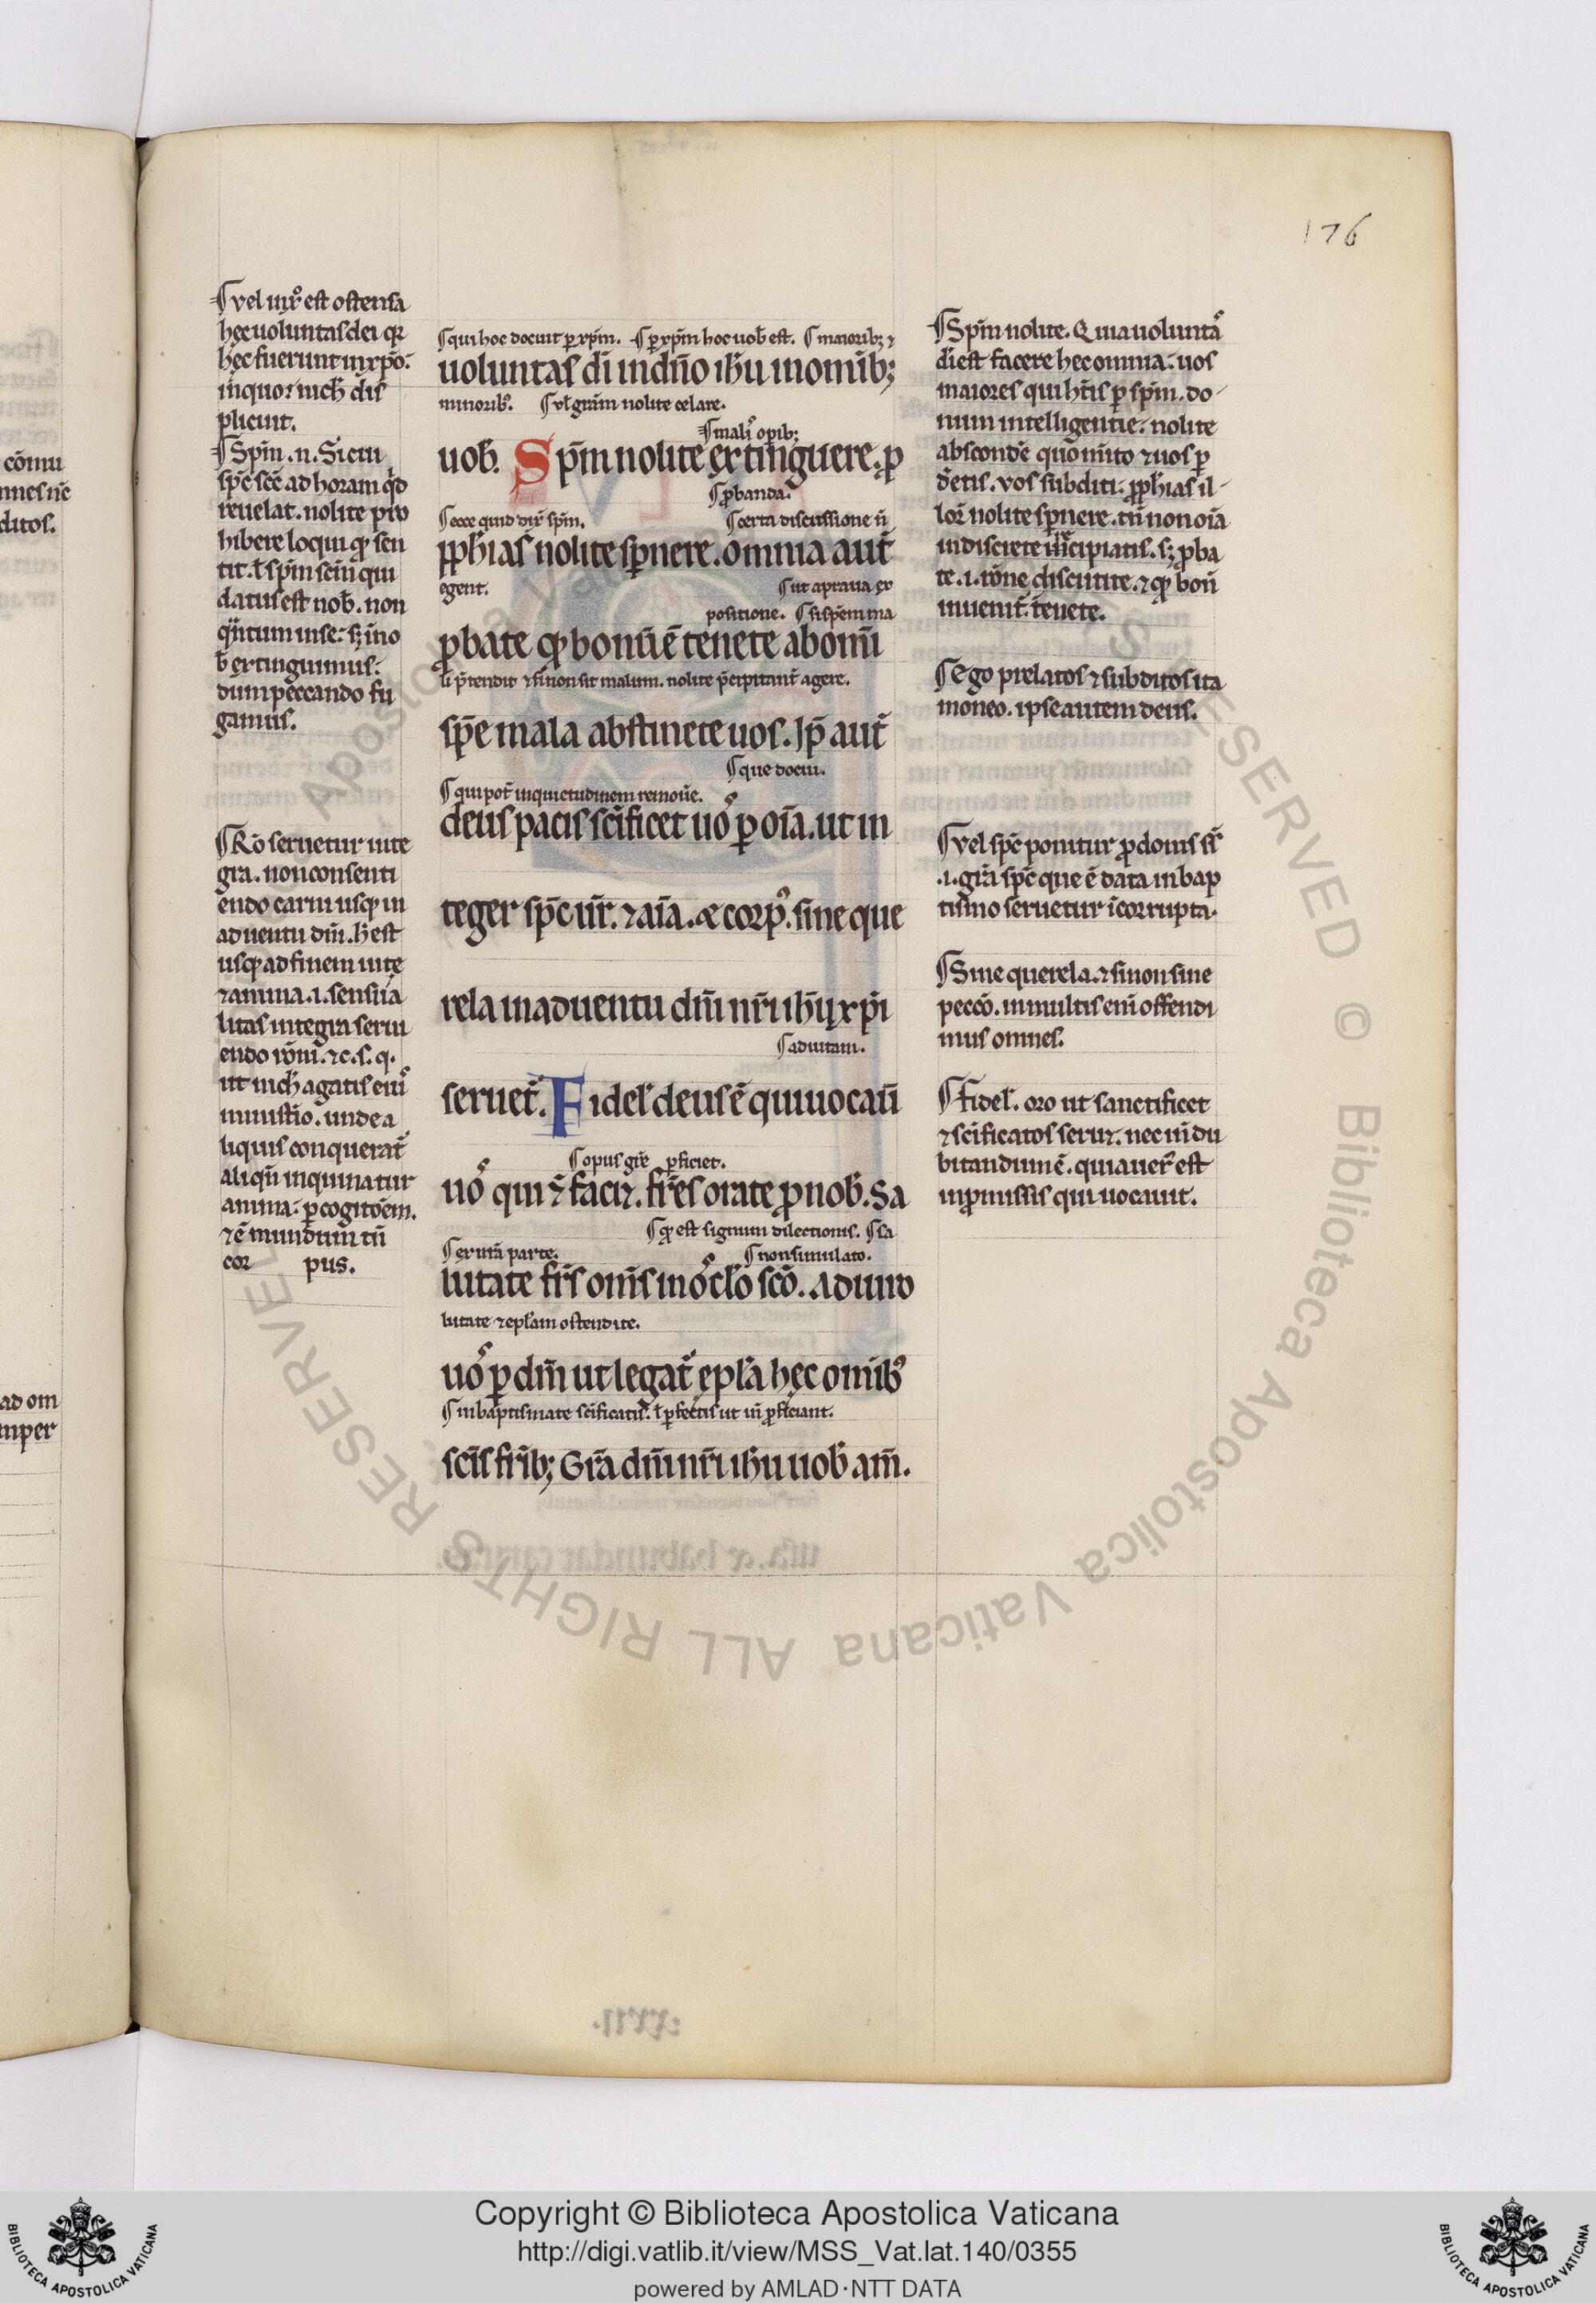 176
ſvel iuxͦ eſt oſtenſa
hęc uoluntaſ dei qꝛ
hęc fuerunt in xp̄o.
in quo nich̄ diſ
plicuit.
Sp̄m .n. Sicui
ſp̄c ſc̄c ad horam qͥd
reuelat. nolite pro
hibere loqui qꝫ ſen
tit. ł ſp̄m ſc̄m qui
datuſ eſt nob̄. non
qͣntum in ſe. ſꝫ in no
b̄ extinguimuſ.
dum peccando fu
gamuſ.
Rō ſeruetur inte
gra. non conſenti
endo carni uſqꝫ in
aduentū dn̄i. h̄ eſt
uſqꝫ ad finem uitę
⁊ anima .i. ſenſua
litaſ integra ſerui
endo rōni. ⁊c. ſ. q.
ut nich̄ agatiſ eiuſ
miniſtͥo. unde a
liquiſ conquerat̄
aliqn̄ inquinatur
anima. ꝑ cogitōem.
⁊ ē mundum tn̄
cor pus.
qui hoc docuit ꝑ xp̄m. ꝑ xp̄m hoc uob̄ eſt. maiorib; ⁊
uoluntaſ di̅ in dn̄o ih̄u in om̄ib;
minoribꝰ. vł grām nolite celare.
maliſ opib;
uob̄. Sp̄m nolite extinguere. ꝓ
ꝓbanda.
ecce quid dix̄ ſp̄m. certa diſcuſſione n̄
ph̄iaſ nolite ſpͤnere. omnia aut̄
egent. ut a praua ex
poſitione. ſi ſpēm ma
ꝓbate qꝫ bonū ē tenete ab omi
li p̄tendit ⁊ ſi non ſit malum. nolite p̄cipitant̄ agere.
ſpē mala abſtinete uoſ. Ip̄ aut̄
que docui.
qui pot̄ inquietudinem remoūe.
deuſ paciſ ſc̄ificet uoſ ꝑ oīa. ut in
teger ſp̄c ur̄. ⁊ aīa. & corpꝰ. ſine que
rela in aduentu dn̄i nr̄i ih̄u xp̄i
ad uitam.
ſeruet̄. Fideł deuſ ē qui uocauı̄
opuſ gr̄e ꝑficiet.
uoſ qui ⁊ faciꝫ. fr̄eſ orate ꝓ nob̄. Sa
qꝫ eſt ſignum dilectioniſ. ſa
ex mͣa parte. non ſimulato.
lutate fr̄ſ om̄ſ in oſclo ſcō. Adiuro
lutate ⁊ epłam oſtendite.
uoſ ꝑ dm̄ ut legat̄ epła hęc omībꝰ
in baptiſmate ſc̄ificatiſ. ł ꝑfectiſ ut in̄ ꝓficiant.
ſc̄iſ fr̄ib; Gr̄a dn̄i nr̄i ih̄u uob̄ am̄.
Sp̄m nolite. Quia uoluntaſ
di̅ eſt facere hec omnia. uoſ
maioreſ qui h̄tiſ ꝑ ſp̄m. do-
num intelligentie. nolite
abſconde quō m̄ito ⁊ uoſ ꝑ
d̄etiſ. voſ ſubditi. ꝓph̄iaſ il-
loꝝ nolite ſpͤnere. tn̄ non oīa
indiſcrete incipiatiſ. ſꝫ ꝓba
te .i. rōne diſcutite. ⁊ qꝫ bonū
inuenit̄. tenete.
Ego prelatoſ ⁊ ſubditoſ ita
moneo. ipſe autem deuſ.
vel ſp̄c ponitur ꝓ doniſ ſp̄ſ
.i. gr̄a ſp̄c que ē data in bap
tiſmo ſeruetur īcorrupta.
Sine querela. ⁊ ſi non ſine
peccō. in multiſ enī offendi
muſ omneſ.
Fideł. oro ut ſanctificet
⁊ ſc̄ificatoſ ſeruꝫ. nec in̄ du
bitandum ē. quia ueꝰ eſt
in ꝓmiſſiſ qui uocauit.
cōmu
ditoſ.
ad om
mper
Copyright © Biblioteca Apostolica Vaticana
http://digi.vatlib.it/view/MSS_Vat.lat.140/0355
powered by AMLAD·NTT DATA